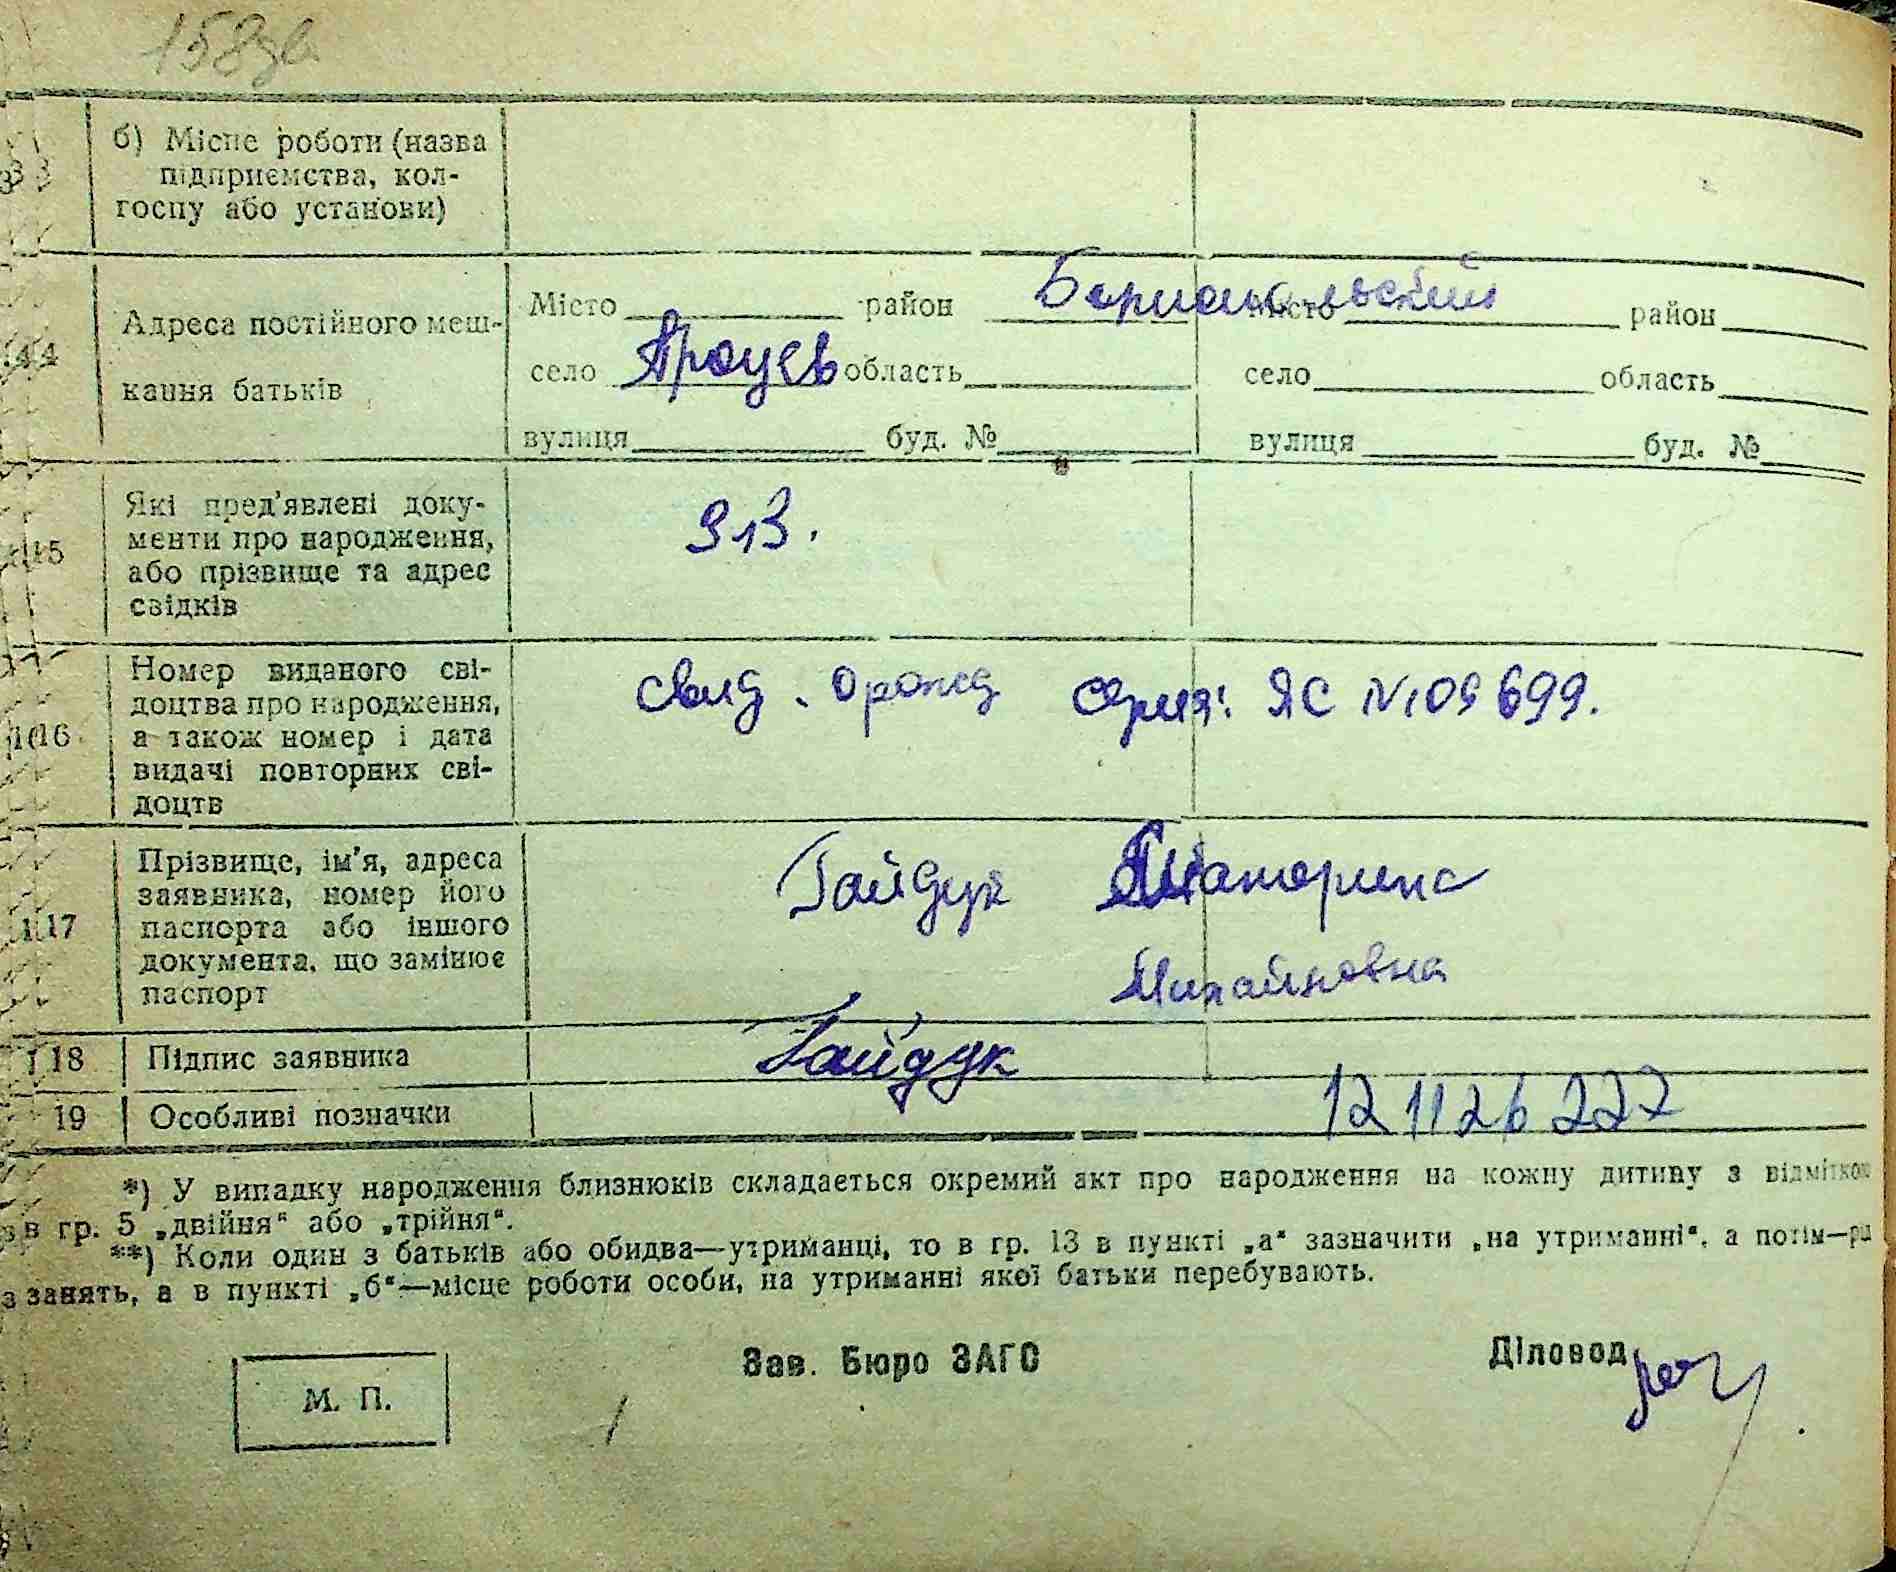 158зв
б) Місце роботи (назва
підприємства, кол-
госпу або установи)
14 Адреса постійного меш-
кання батьків
Місто район Бориспольский Місто район
село Процев область село область
вулиця буд. № вулиця буд. №
15 Які пред'явлені доку-
менти про народження,
або прізвище та адрес
свідків
913.
16 Номер виданого сві-
доцтва про народження,
а також номер і дата
видачі повторних сві-
доцтв
свид. о рожд серия: ЯС №109699.
17 Прізвище, ім'я, адреса
заявника, номер його
паспорта або іншого
документа, що замінює
паспорт
Гайдук Екатерина
Михайловна
18 Підпис заявника Гайдук
19 Особливі позначки 121126227
*) У випадку народження близнюків складається окремий акт про народження на кожну дитину з відміткою
в гр. 5 „двійня“ або „трійня“.
**) Коли один з батьків або обидва—утриманці, то в гр. 13 в пункті „а“ зазначити „на утриманні“, а потім—рід
занять, а в пункті „б“—місце роботи особи, на утриманні якої батьки перебувають.
Зав. Бюро ЗАГС Діловод
М. П.